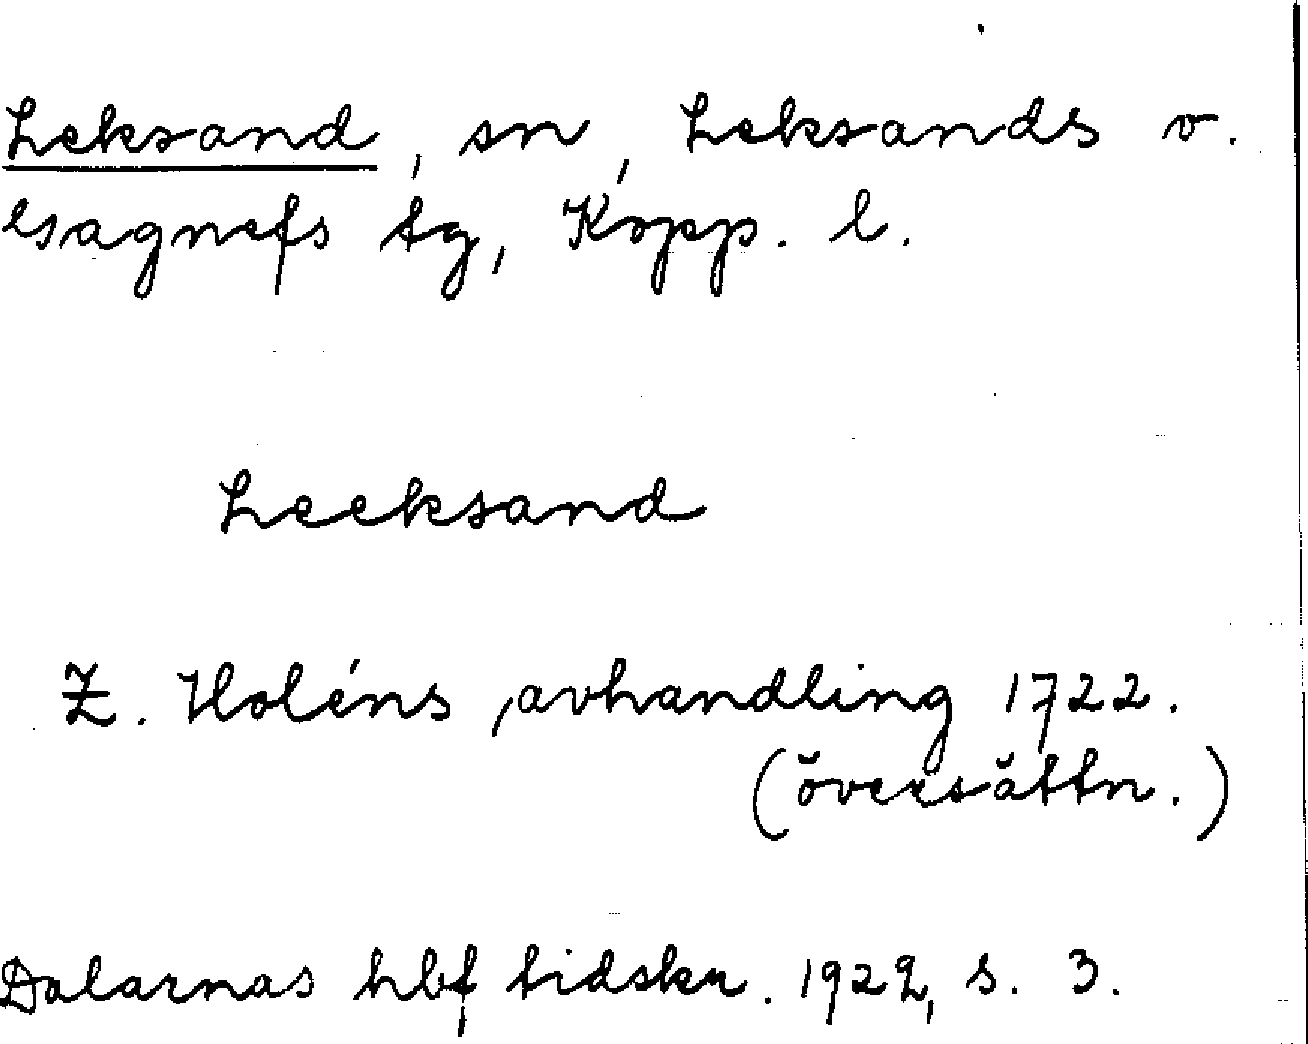 Leksand, sn, Leksands o.
Gagnefs tg, Kopp. l.
Leeksand
Z. Holéns avhandling 1722.
(översättn.)
Dalarnas hbf tidskr. 1922, s. 3.